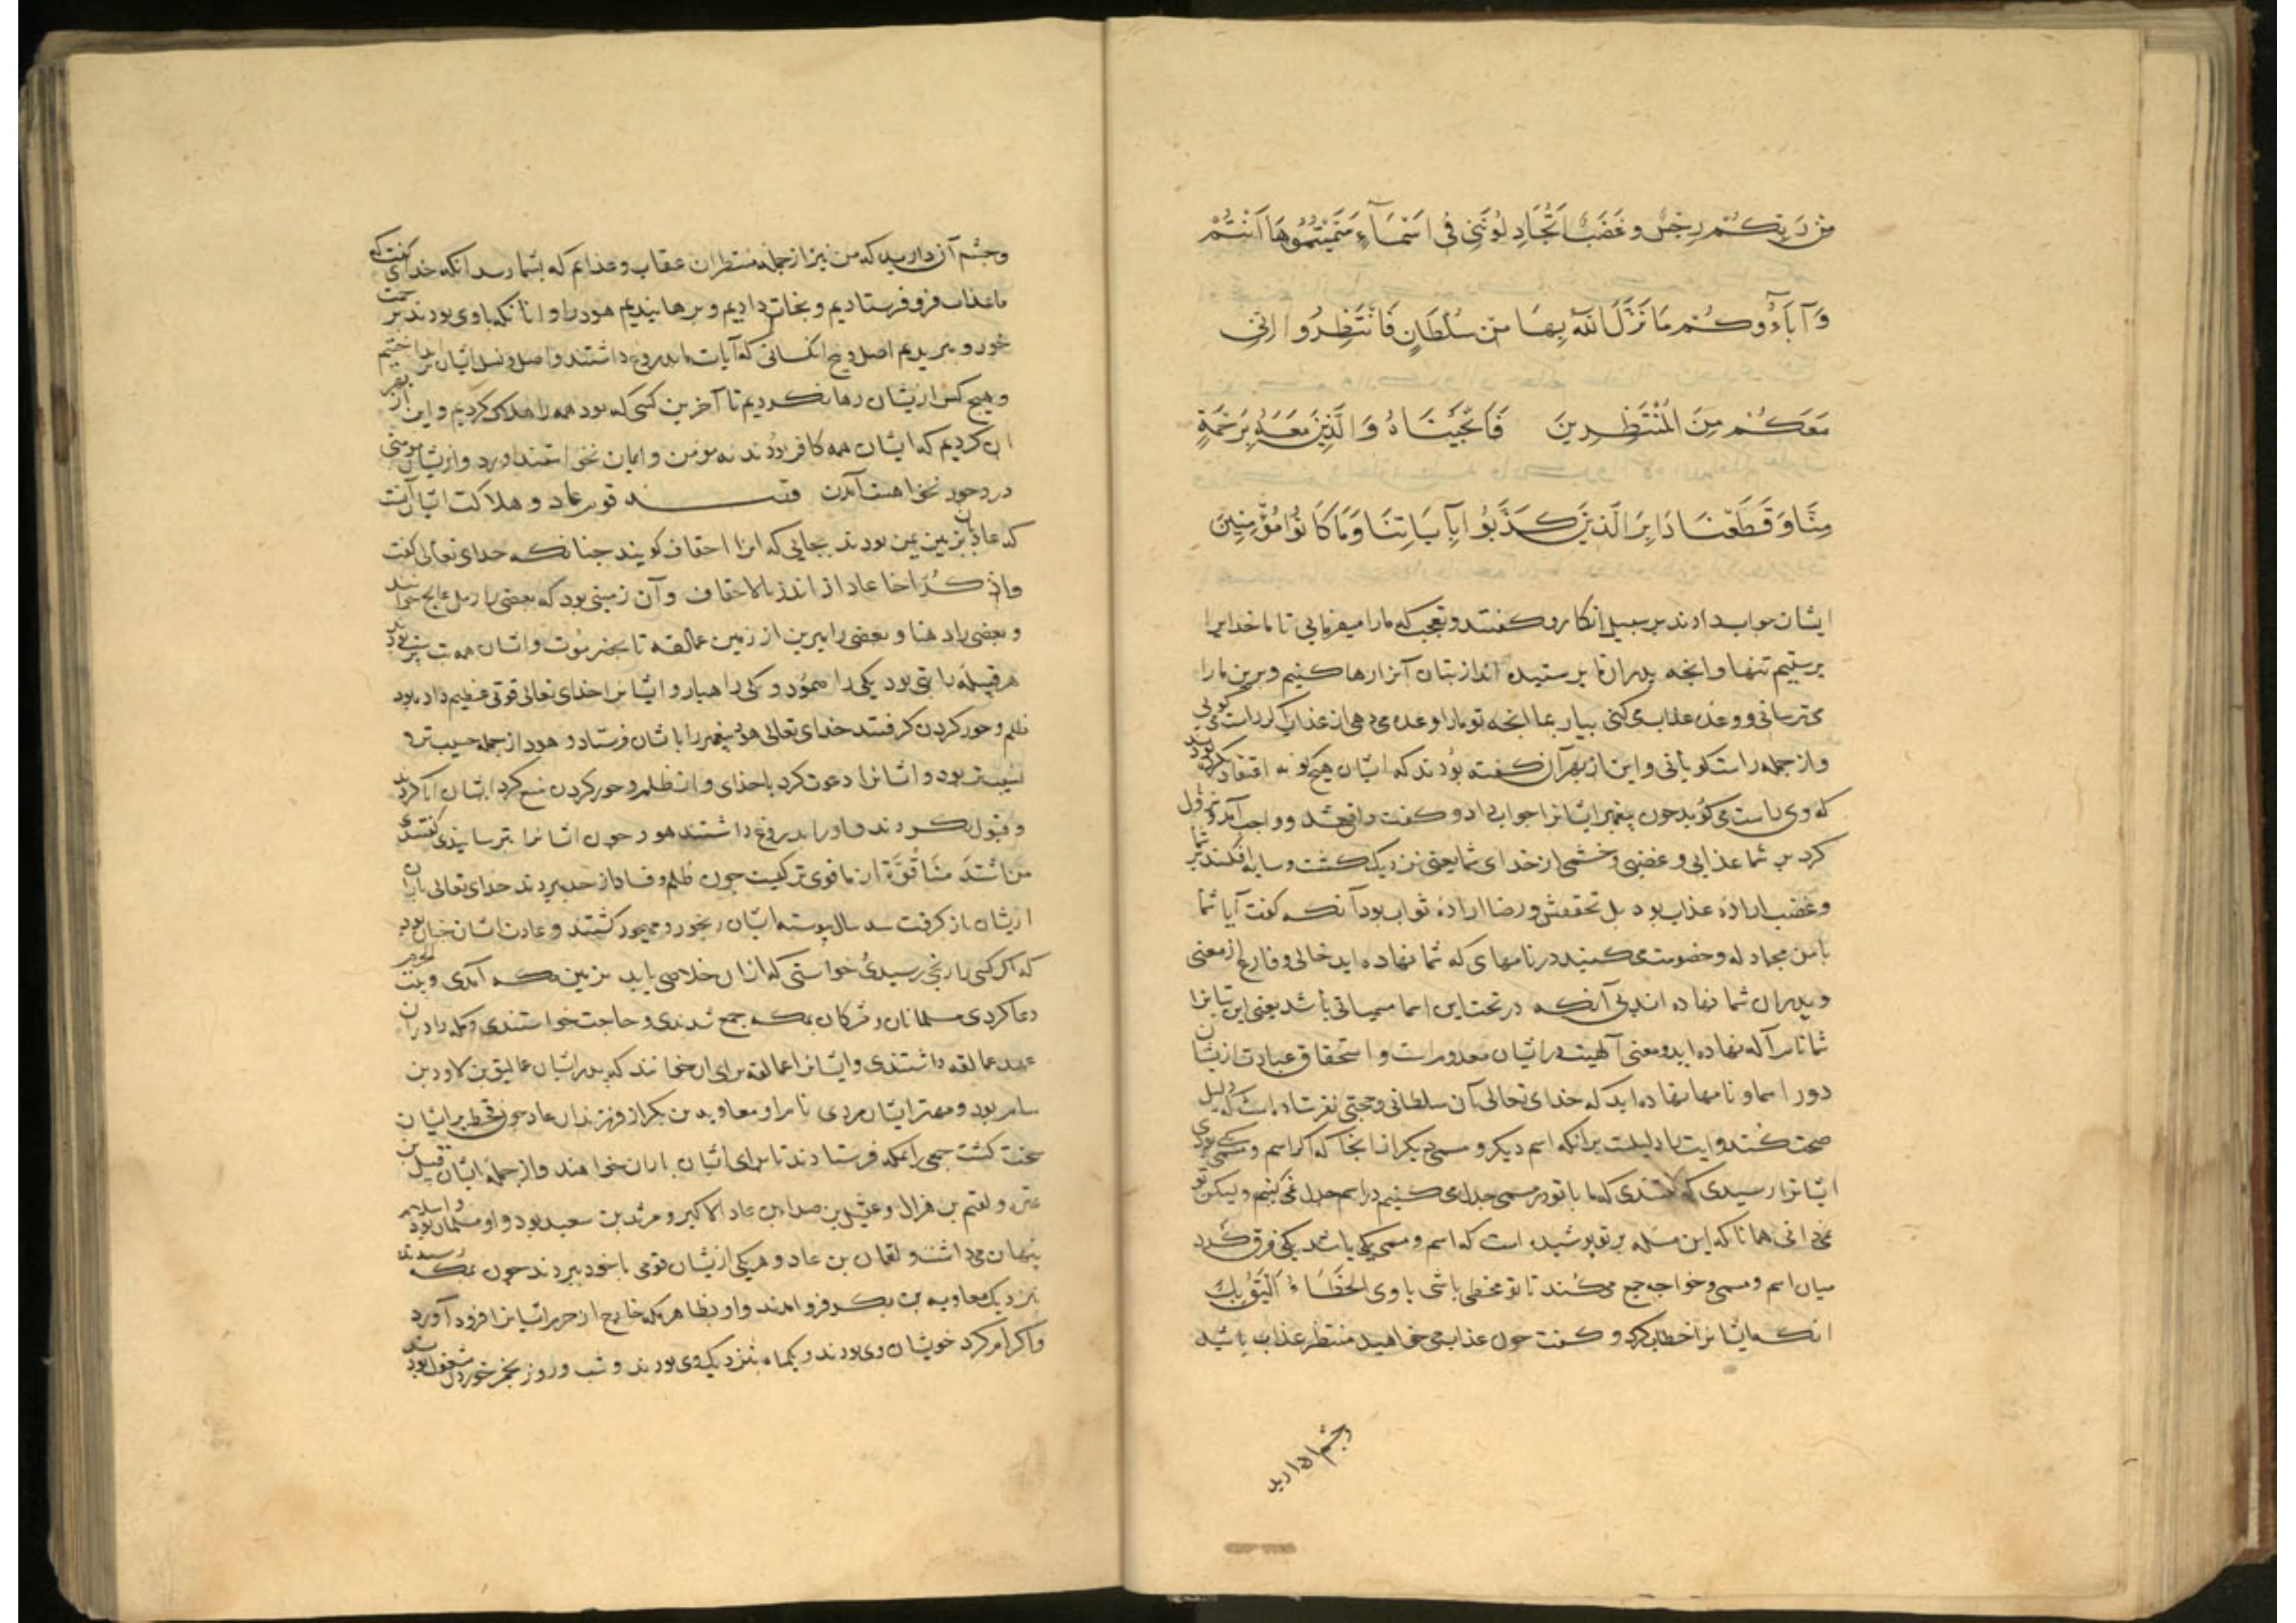 مِنْ رَبِّكُمْ رِجْسٌ وَغَضَبٌ اَتُجَادِلُونَنِي فِي اَسْمَآءٍ سَمَّيْتُمُوهَا اَنْتُمْ
وَآبَآؤُوكُمْ مَا نَزَّلَ اللّهُ بِهَا مِنْ سُلْطَانٍ فَانْتَظِرُوا اِنِّي
مَعَكُمْ مِنَ الْمُنْتَظِرِينَ فَاَنْجَيْنَاهُ وَالَّذِينَ مَعَهُ بِرَحْمَةٍ
مِنَّا وَقَطَعْنَا دَابِرَ الَّذِينَ كَذَّبُوا بِآيَاتِنَا وَمَا كَانُوا مُؤْمِنِينَ
ایشان جواب دادند بر سبیل انکار و کفتند و تعجب که ما را میفرمایی تا ما خدایرا
برستیم تنها و انجه بدران ما برستیده اند از بتان آنرا رها کنیم و برین ما را
می ترسانی و وعده عذاب می کنی بیار بما انجه تو ما را وعده می دهی از عذاب اکر راست می کویی
و از جمله راست کویانی و این از بهر آن کفته بودند که ایشان هیچ کونه اعتقاد نکرده بودند
که وی راست می کوید جون بیغمبر ایشانرا جواب داد و کفت واقع شد و واجب آمد و نزول
کرد بر شما عذابی و غضبی و خشمی از خدای شما یعنی نزدیک کشت و سایه افکند بر شما
و غضب اراده عذاب بود بل تحققش و رضا اراده ثواب بود آنکه کفت آیا شما
با من مجادله و خصومت می کنید در نامهای که شما نهاده اید خالی و فارغ از معنی
و بدران شما نهاده اند بی آنکه در تحت این اسما مسمیاتی باشد یعنی این بتانرا
شما نام آله نهاده اید و معنی آلهیت در ایشان معدومست و استحقاق عبادت ازیشان
دور اسما و نامها نهاده اید که خدای تعالی بآن سلطانی و حجتی نفرستاده است که دلیل
صحت کند و ایت را دلیلست برانکه اسم دیکر و مسمی دیکر از انجا که اکر اسم و مسمی یکی بودی
ایشانرا رسیدی که کفتندی که ما با تو در مسمی جدل می کنیم در اسم جدل نمی کنیم ولیکن تو
نمی دانی همانا که این مسله بر تو بوشیده است که اسم و مسمی یکی باشد یکی فرق کرد
میان اسم و مسمی و خواجه جمع می کند تا تو مخطی باشی یا وی
انکه ایشانرا خطاب کرد و کفت جون عذاب می خواهید منتظر عذاب باشید
وجشم آن دارید
وجشم آن دارید که من نیز از جمله منتظران عقاب و عذابم که بشما رسد انکه خدای کفت که
ما عذاب فرو فرستادیم و نجات دادیم و برهانیدیم هود را و انانکه با وی بودند برحمت
خود و ببریدیم اصل و بیخ انکسانی که آیات ما بدروغ داشتند و اصل و نسل ایشان بر انداختیم
و هیچ کس ازیشان رها نکردیم تا آخرین کسی که بود همه را هلاک کردیم و این از بهر
ان کردیم که ایشان همه کافر بودند نه مومن و ایمان نخواستند اورد و ازیشان مومنی
در وجود نخواهست آمدن قصه قوم عاد و هلاکت ایشان آنست
که عادیان بزمین یمن بودند بجایی که انرا احقاف کویند جنانکه خدای تعالی کفت
واذکر اخا عاد اذ انذر بالاحقاف و آن زمینی بود که بعضی را رمل عالج خوانند
و بعضی را دهنا و بعضی را یبرین از زمین عمالقه تا بحضرموت و ایشان همه بت برست بودند
هر قبیله را بتی بود یکی را صمود و یکی را هبار و ایشانرا خدای تعالی قوتی عظیم داده بود
ظلم و جور کردن کرفتند خدای تعالی هود بیغمبر را بایشان فرستاد و هود از جمله حسیب تر و
نسیب تر بود و ایشانرا دعوت کرد با خدای و از ظلم و جور کردن منع کرد ایشان ابا کردند
و قبول نکردند و او را بدروغ داشتند هود جون ایشانرا بترسانیدی کفتندی
من اشد منا قوة از ما قوی تر کیست جون ظلم و فساد از حد ببردند خدای تعالی باران
ازیشان باز کرفت سه سال بیوسته ایشان رنجور و مجهود کشتند و عادت ایشان جنان بود
که اکر کسی را رنجی رسیدی خواستی که ازان خلاصی یابد بزمین مکه آمدی و بیت الحرم
دعا کردی مسلمانان و مشرکان بمکه جمع شدندی و حاجت خواستندی و مکه را دران
عهد عمالقه داشتندی و ایشانرا عمالقه برای ان خوانند که بدر ایشان عملیق بن لاود بن
سام بود و مهتر ایشان مردی نام او معاویه بن بکر از فرزندان عاد جون قحط بر ایشان
سخت کشت جمعی را بمکه فرستادند تا برای ایشان باران خواهند و از جمله ایشان قیل بن
عتر و لقیم بن هزال و عثیل بن صد ابن عاد الاکبر و مرثد بن سعید بود و او مسلمان بود و اسلام
بنهان می داشت و لقمان بن عاد و هر یکی ازیشان قومی با خود ببردند جون بمکه رسیدند
نزدیک معاویه بن بکر فرو امدند و او بظاهر مکه خارج از حرم ایشانرا فرود آورد
و اکرام کرد خویشان وی بودند و یکماه بنزدیک وی بودند و شب و روز بخمر خوردن مشغول بودند